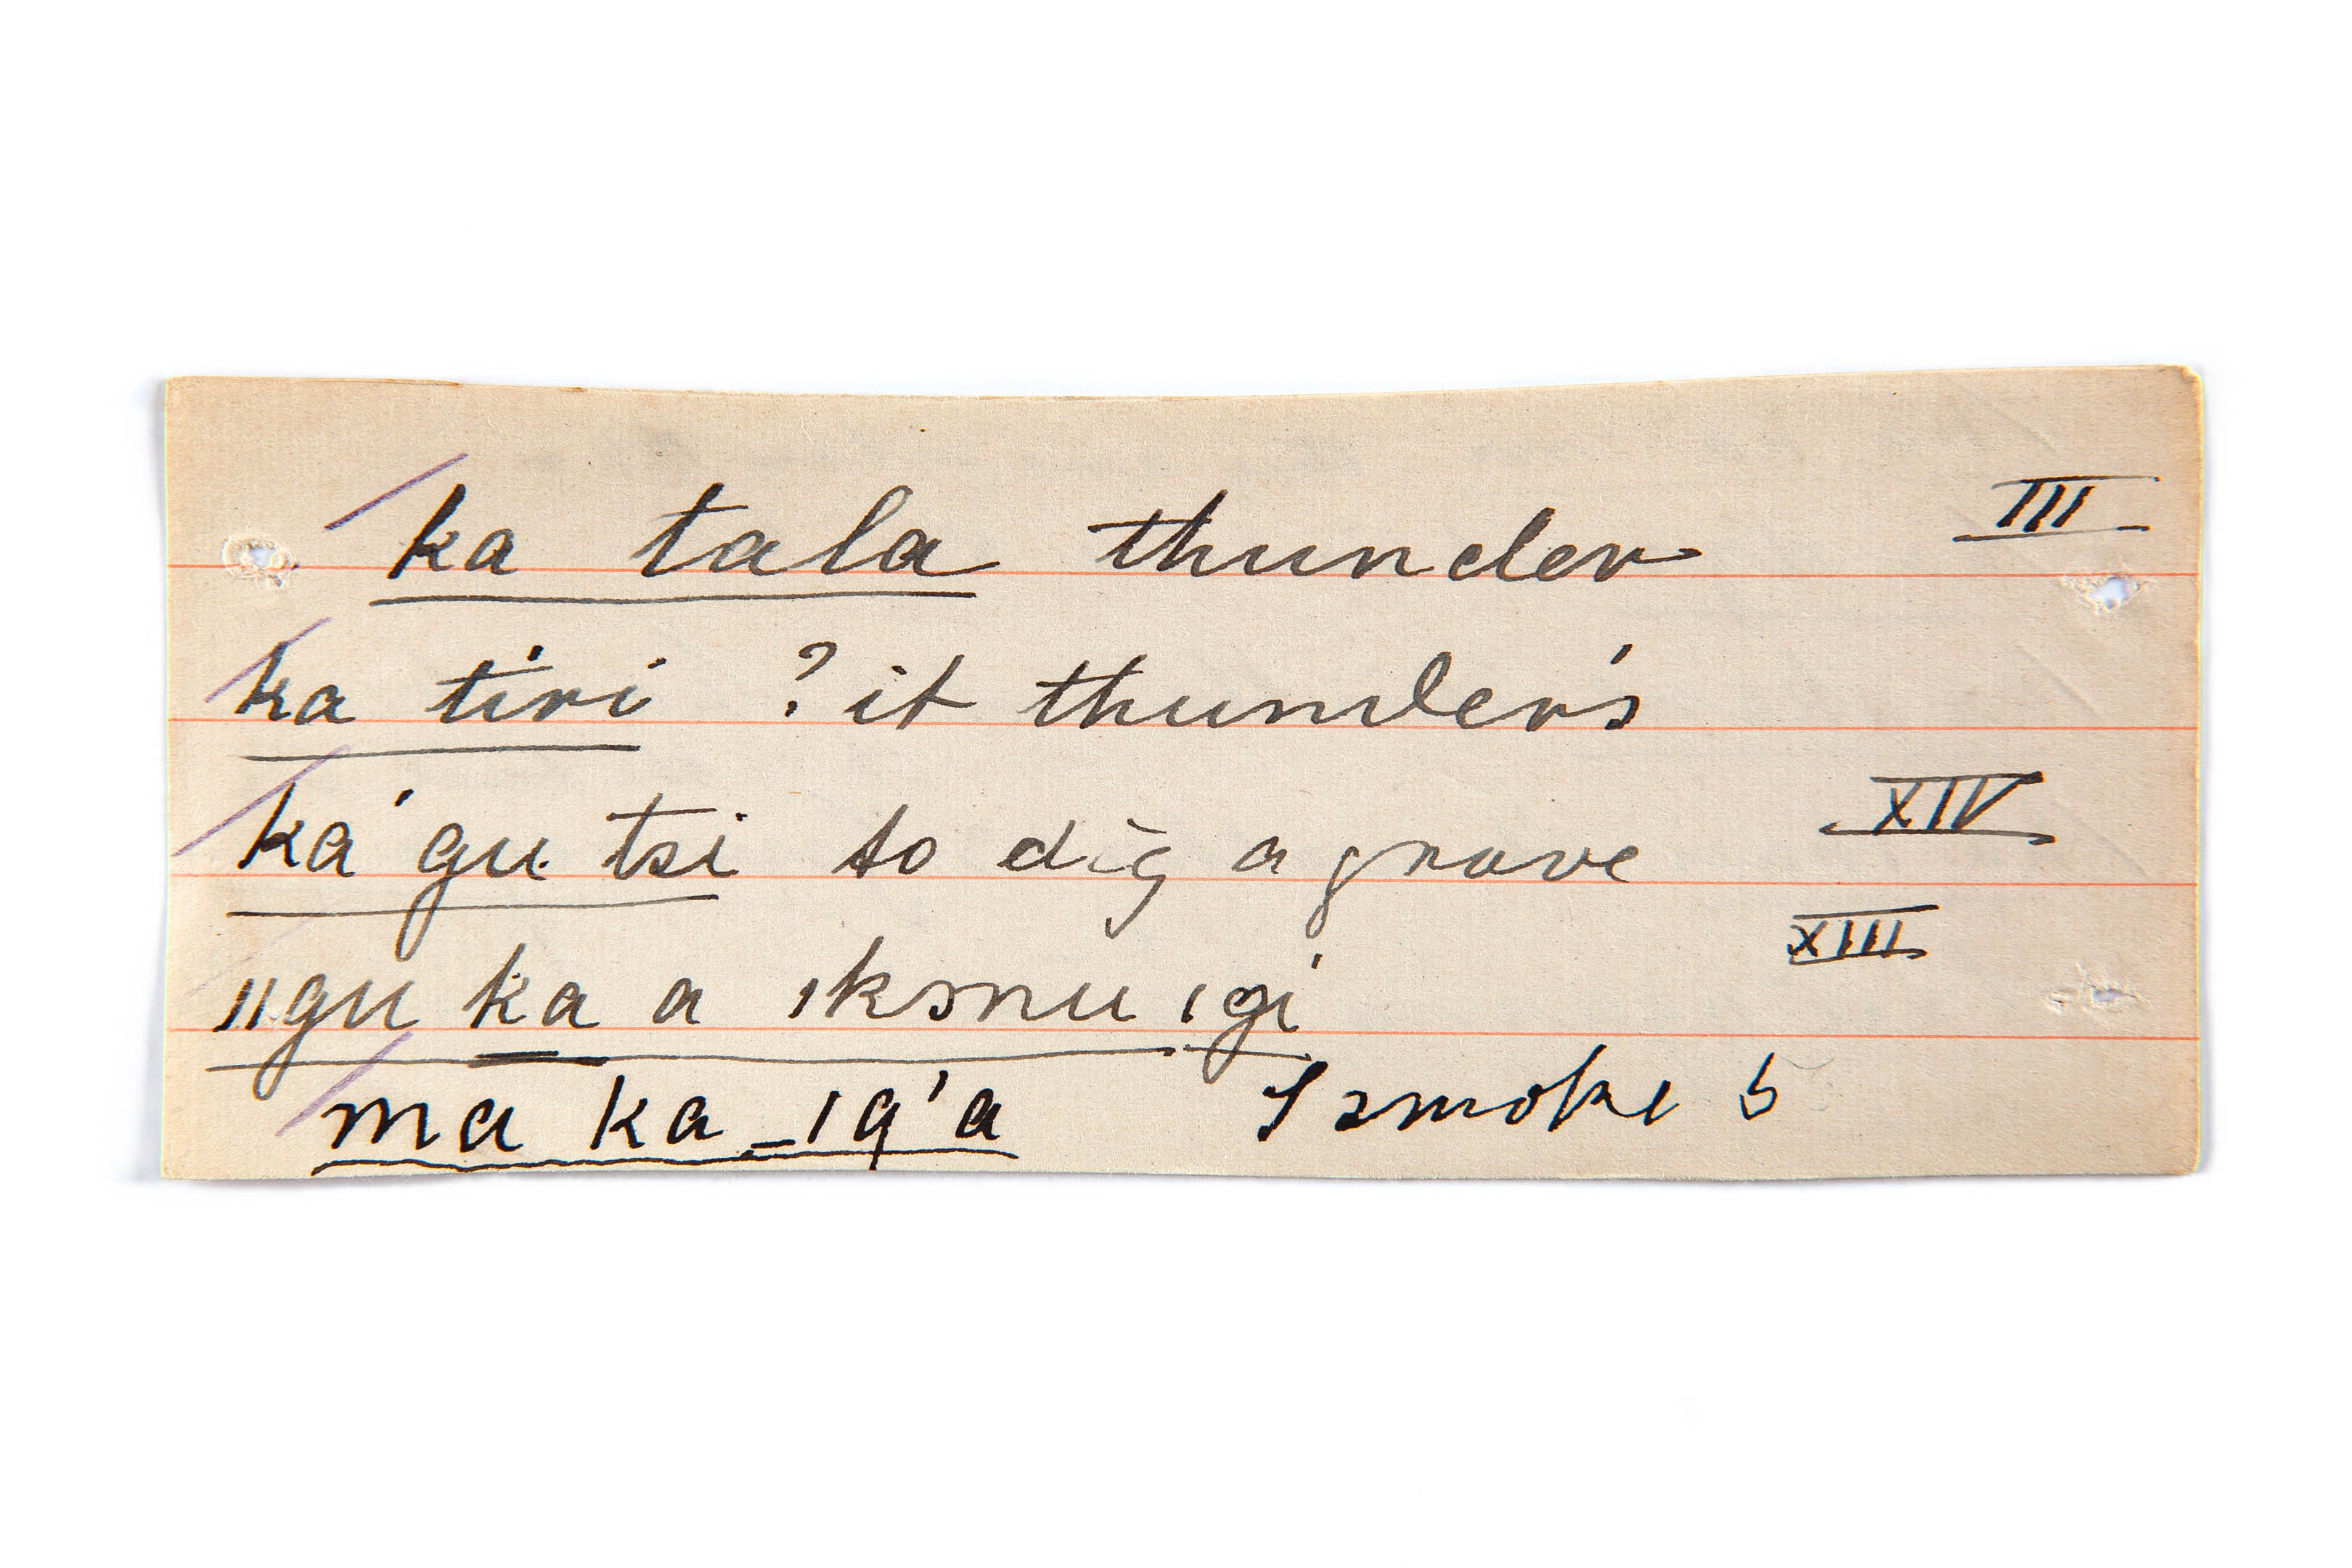 ka tala thunder III
ka tiri ? it thunders
ka' gu tsi to dig a grave XIV
XIII
ııgu ka a ıksnu ıgi
ma ka_ıq'a I smoke 5